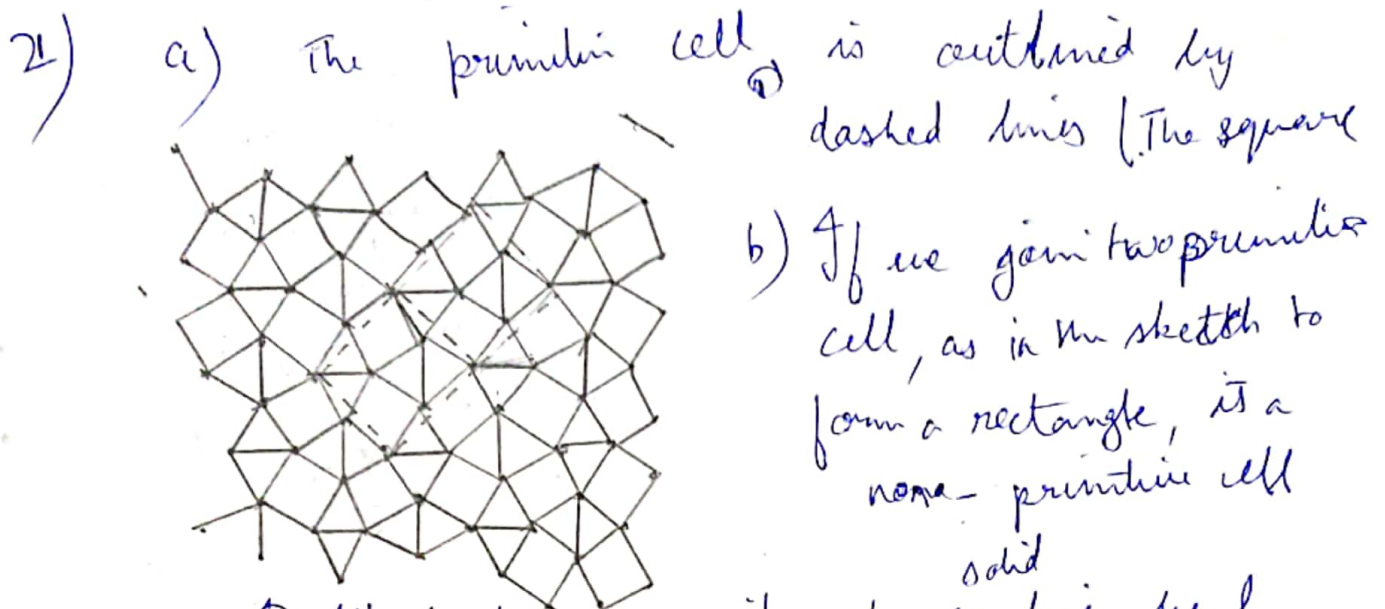 21) a) The primitive cell is outlined by
dashed lines (The square
b) If we join two primitive
cell, as in the sketch to
form a rectangle, it's a
non-primitive cell
solid